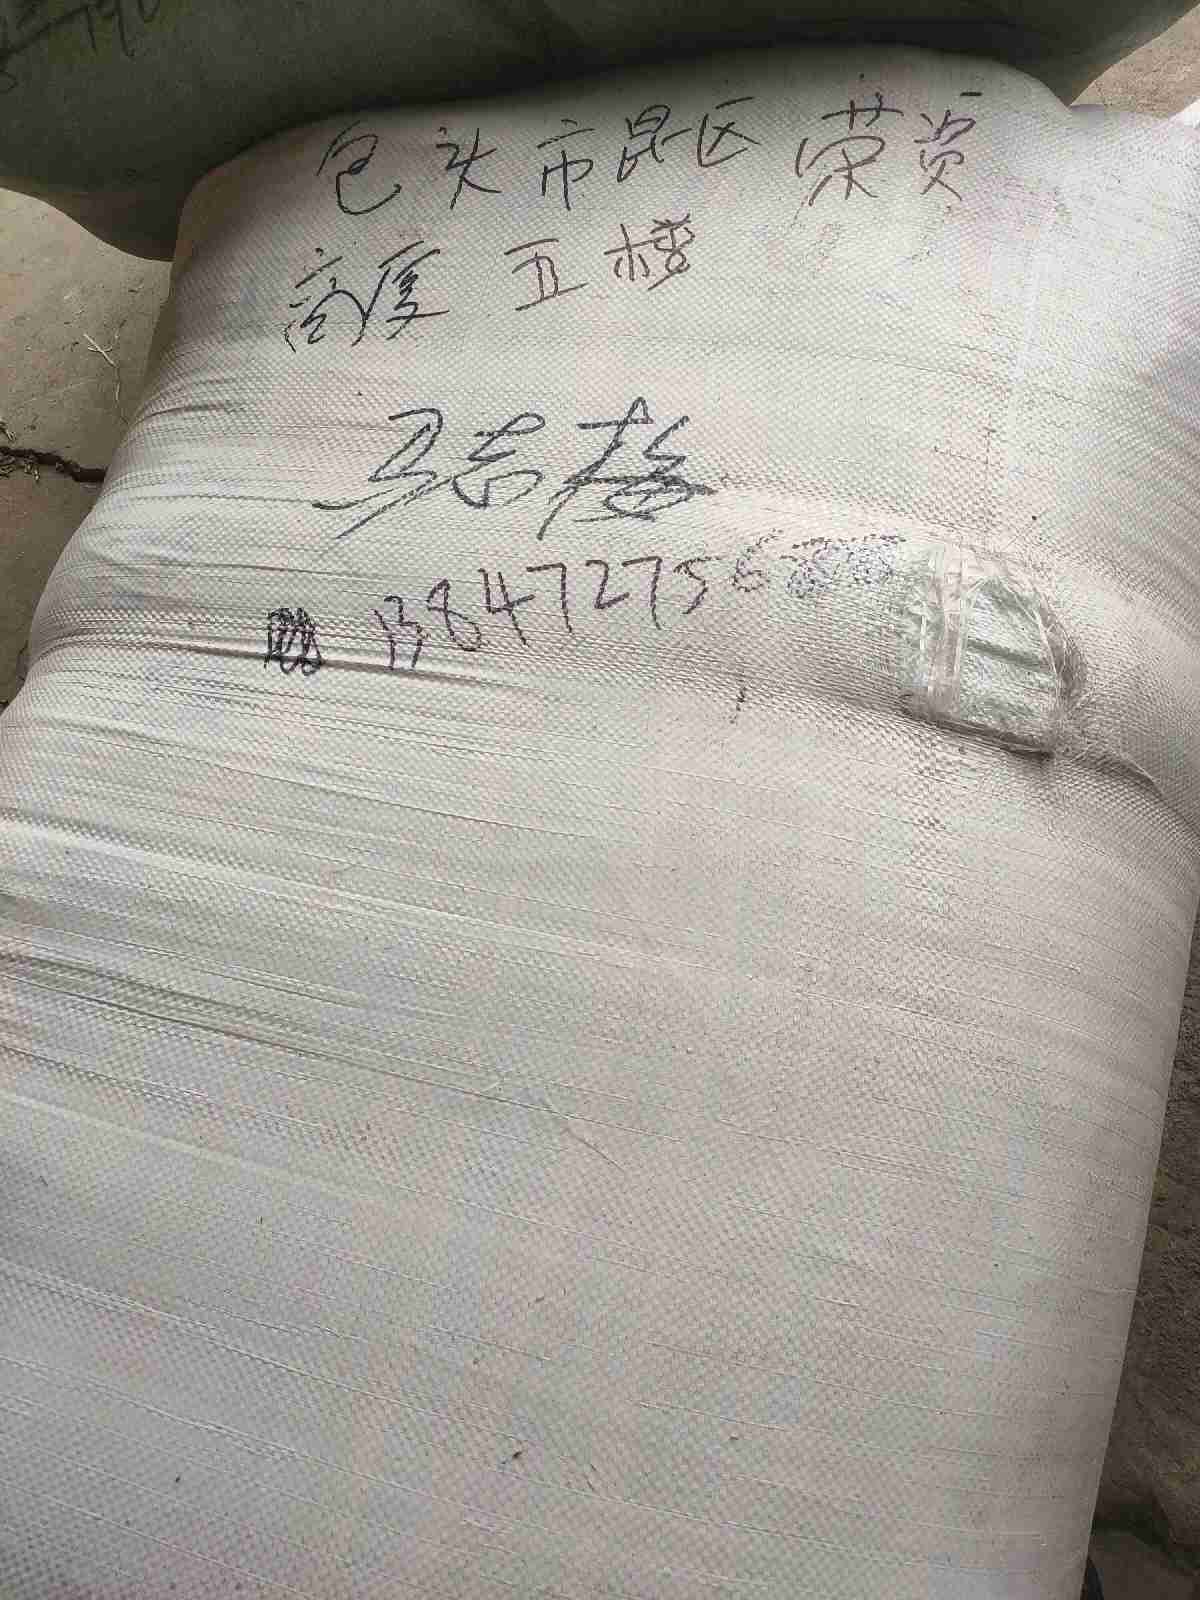 包头市昆区 荣资
高度 五楼
马志梅
138472756